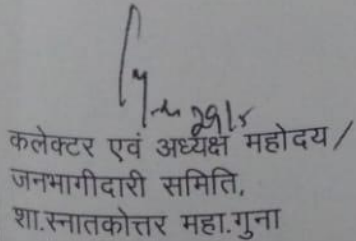 29/5
कलेक्टर एवं अध्यक्ष महोदय/
जनभागीदारी समिति,
शा.स्नातकोत्तर महा.गुना